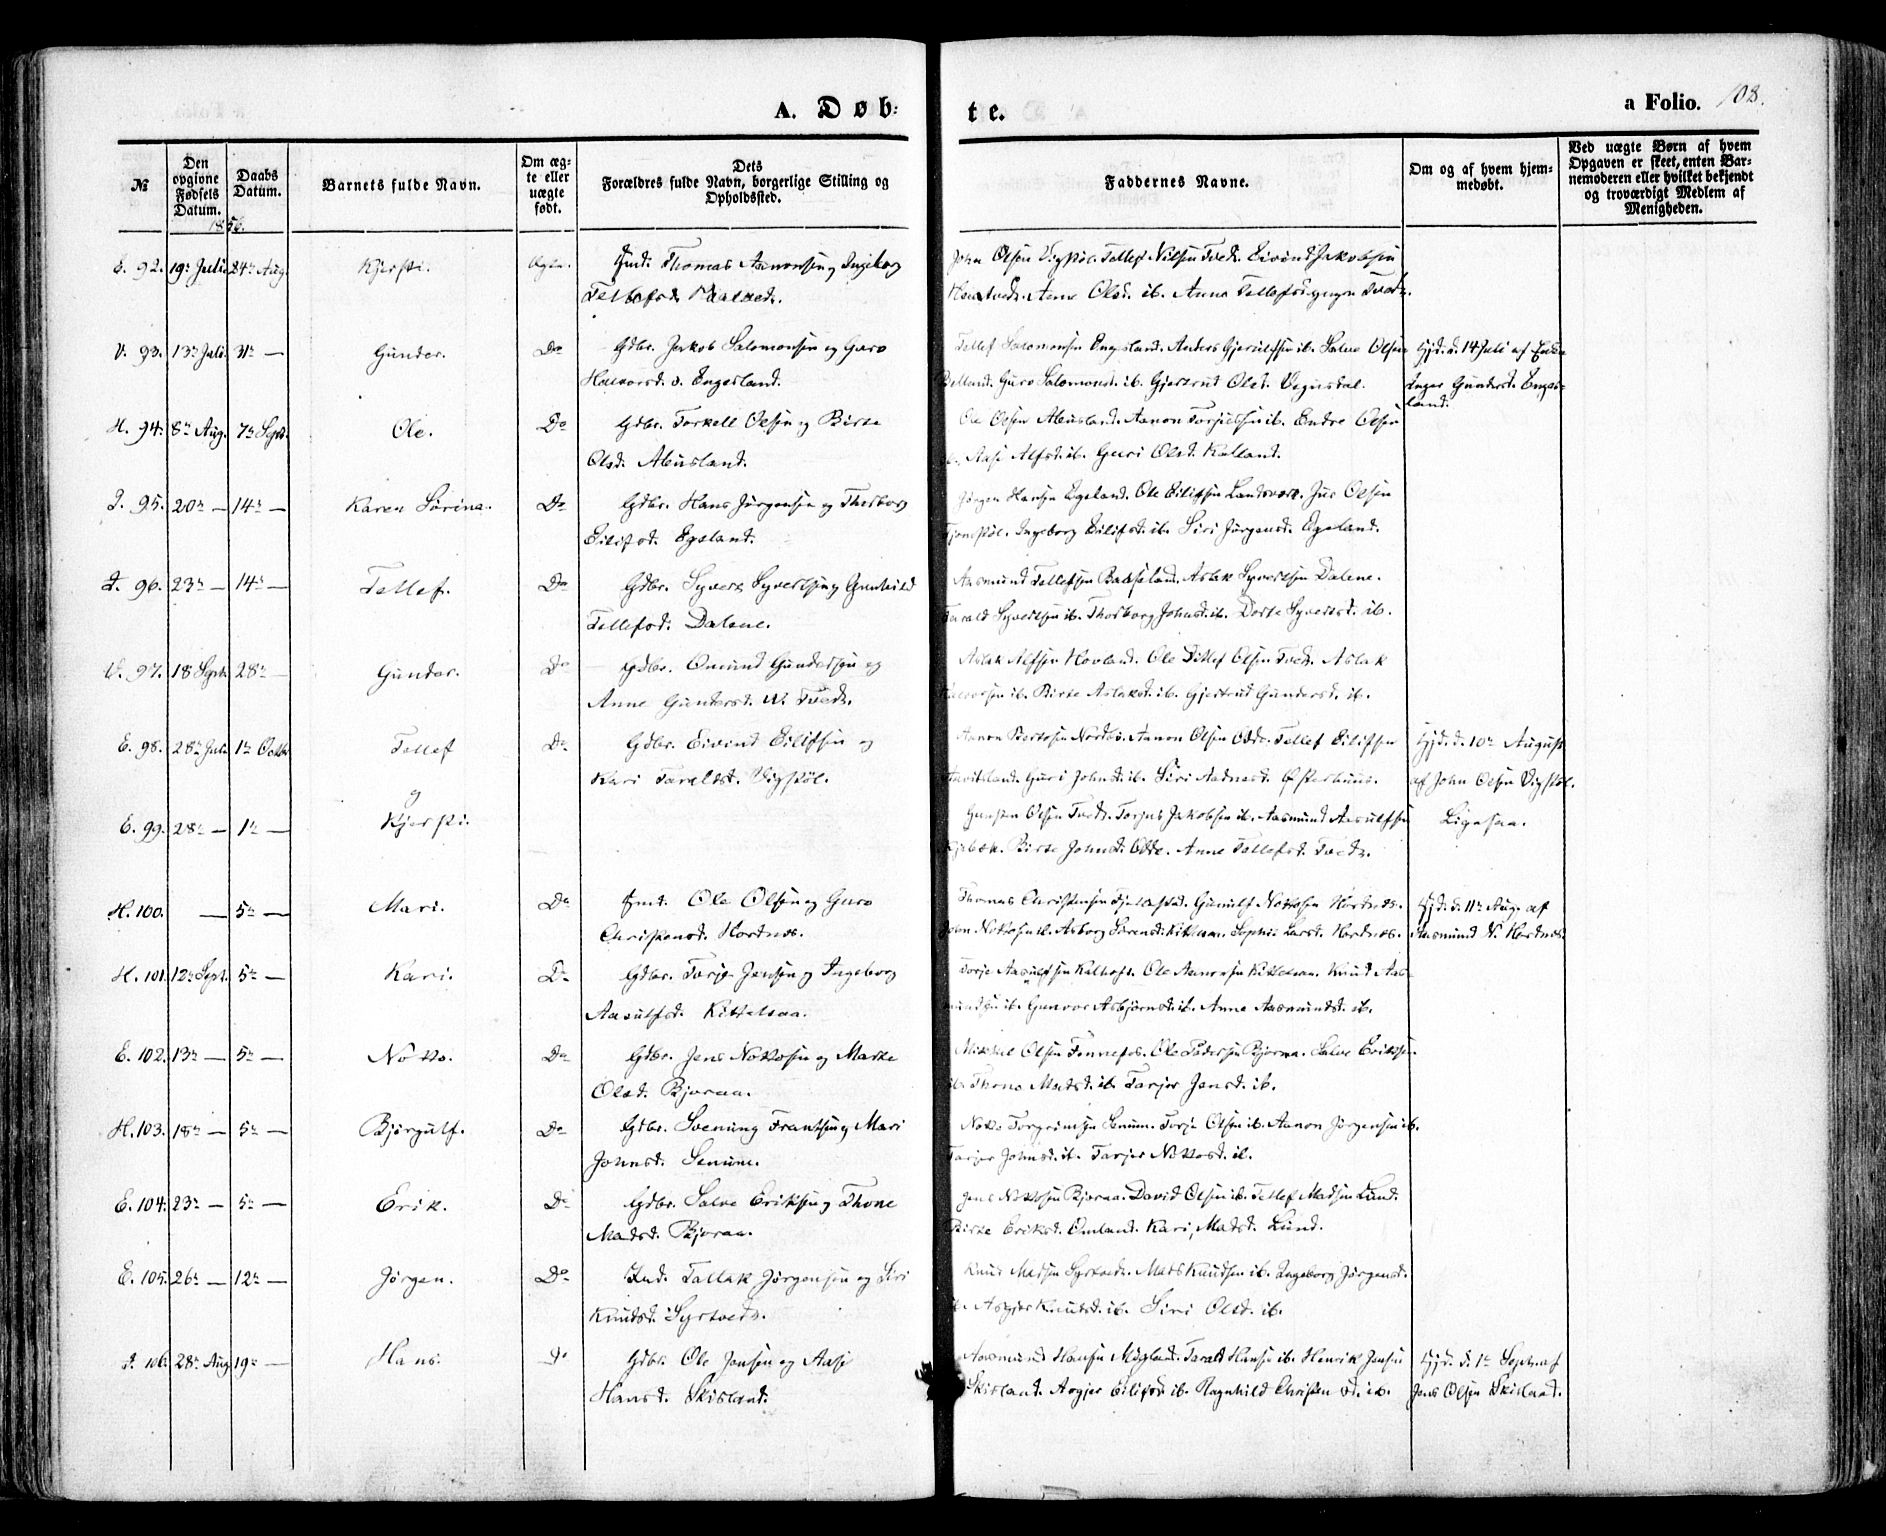 A. Døb=
te.
a Folio. 108.
№
Den opgivne Fødsels Datum.
Daabs Datum.
Barnets fulde Navn.
Om ægte eller uægte født.
Dets Forældres fulde Navn, borgerlige Stilling og Opholdssted.
Faddernes Navne.
Om og af hvem hjemmedøbt.
Ved uægte Børn af hvem Opgaven er skeet, enten Barnemoderen eller hvilket bekjendt og troværdigt Medlem af Menigheden.
1856.
E. 92. 19de Juli 24de Aug. Kjersti. Ægte. Thomas Aanonsen og Ingeborg
John Olsen Vigstøl. Tellef Nilsen Tveds. Eivind Jakobsen
V. 93. 13de Juli 31te — Gunder. Do Gdbr. Jakob Salomonsen og Guro
Halvorsd. v. Engesland.
Tellef Salomonsen Engesland. Anders Gjerulfsen ib. Salve Olsen
Guro Salomonsd. ib. Gjertrud Olsd. Vegusdal.
Hjd. d. 14 Juli af
Inger Gundersd. Engesland.
H. 94. 8de Aug. 7de Sept. Ole. Do Gdbr. Torkell Olsen og Birte
Olsd. Abusland.
Ole Olsen Abusland. Aanon Torjulsen ib. Endre Olsen
ib. Aase Alfsd. ib. Guri Olsd. Kalland.
I. 95. 20de — 14de — Karen Sørine. Do Gdbr. Hans Jørgensen og Thorborg
Eilifsd. Egeland.
Jørgen Hansen Egeland. Ole Eilifsen Landsverk. Jus Olsen
Ingeborg Eilifsd. ib. Siri Jørgensd. Egeland.
I. 96. 23de — 14de — Tellef. Do Gdbr. Syvert Syvertsen og Gunhild
Tellefsd. Dalene.
Aasmund Tellefsen Aslak Syvertsen Dalene.
Tarald Syvertsen ib. Thorborg Johnsd. ib. Dorte Syvertsd. ib.
V. 97. 18 Sept. 28de — Gunder. Do Gdbr. Omund Gundersen og
Anne Gundersd. Tveds.
Aslak Alfsen Hovland. Ole Ditlef Olsen Tveds. Aslak
Halvorsen ib. Birte Aslaksd. ib. Gjertrud Gundersd. ib.
E. 98. 28de Juli 1te Octbr. Tellef Do Gdbr. Eivind Eilifsen og
Kari Taraldsd. Vigstøl.
Aanon Bertosen Nordbø. Aanon Olsen Odde. Tellef Eilifsen
Guri Johnsd. ib. Siri Aadnesd. Østerhuus.
Hjd. d. 10de August
af John Olsen Vigstøl.
og
E. 99. 28de — 1te — Kjersti.
Gunsten Olsen Tveds. Torjus Jakobsen ib. Aasmund Aasulfsen
Birte Johnsd. Odde. Anne Tellefsd. Tveds.
Ligesaa.
H. 100. — 5te — Mari. Do Ole Olsen og Guro
Christensd. Hordnes.
Thomas Christensen Gunulf Nottosen Hordnes.
John Nottosen ib. Asborg Sørensd. Kittelsaa. Sophie Larsd. Hordnes.
Hjd. d. 11te Aug. af
Aasmund N. Hordnes.
H. 101. 12te Sept. 5te — Kari. Do Gdbr. Torje Jensen og Ingeborg
Aasulfsd. Kittelsaa.
Torje Aasulfsen Kalhoft. Ole Aanonsen Kittelsaa. Knud Aasmundsen
ib. Gunvor Asbjørnsd. ib. Anne Aasmundsd. ib.
E. 102. 13de — 5te — Notto. Do Gdbr. Jens Nottosen og Marte
Olsd. Bjoraa.
Mikkel Olsen Fennefos. Ole Pedersen Bjoraa. Salve Eriksen
ib. Thone Madsd. ib. Tarjer Jensd. ib.
H. 103. 18de — 5te — Bjørgulf. Do Gdbr. Svenung Frantsen og Mari
Johnsd. Senum.
Notto Torgrimsen Senum. Torje Olsen ib. Aanon Jørgensen ib.
Tarjer Johnsd. ib. Tarjer Nottosd. ib.
E. 104. 23de — 5te — Erik. Do Gdbr. Salve Eriksen og Thone
Madsd. Bjoraa.
Jens Nottosen Bjoraa. David Olsen ib. Tellef Madsen Lund.
Birte Eriksd. Omland. Kari Madsd. Lund.
E. 105. 26de — 12te — Jørgen. Do Ind. Tallak Jørgensen og Siri
Knudsd. Syrtveds.
Knud Madsen Syrtveds. Mads Knudsen ib. Ingeborg Jørgensd.
ib. Asgjer Knudsd. ib. Siri Olsd. ib.
I. 106. 28de Aug. 19de — Hans. Do Gdbr. Ole Jensen og Aase
Hansd. Skisland.
Aasmund Hansen Møgland. Tarald Hansen ib. Henrik Jensen
Skisland. Asgjer Eilifsd. ib. Ragnhild Christensd. ib.
Hjd. d. 1te Sept. af
Jens Olsen Skisland.